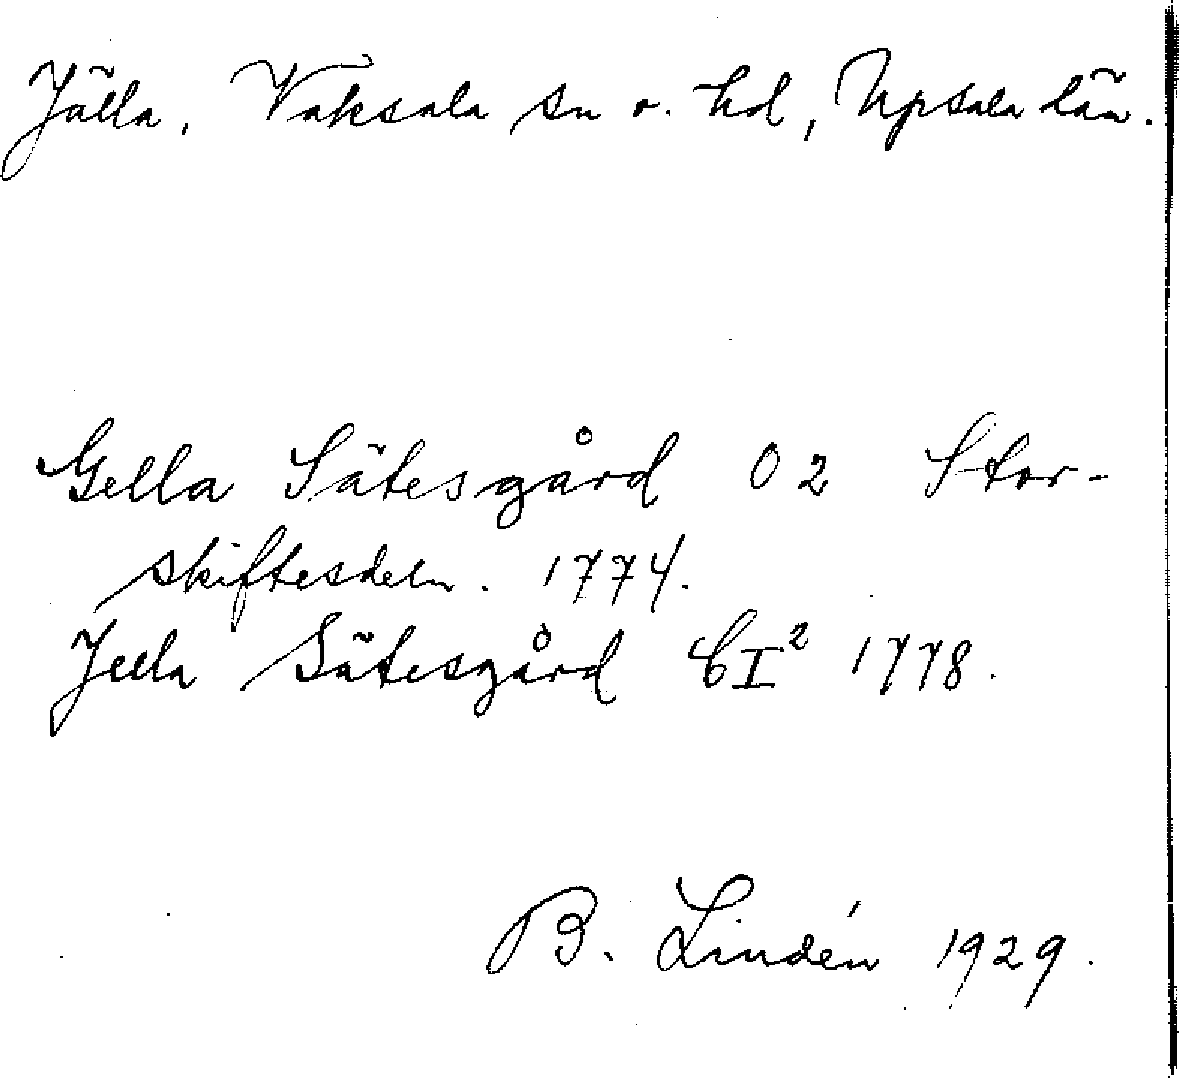 Jälla, Vaksala sn o. hd, Upsala län.
Gella Sätesgård O 2 Stor-
skiftesdeln. 1774.
Jella Sätesgård CI² 1778.
B. Lindén 1929.